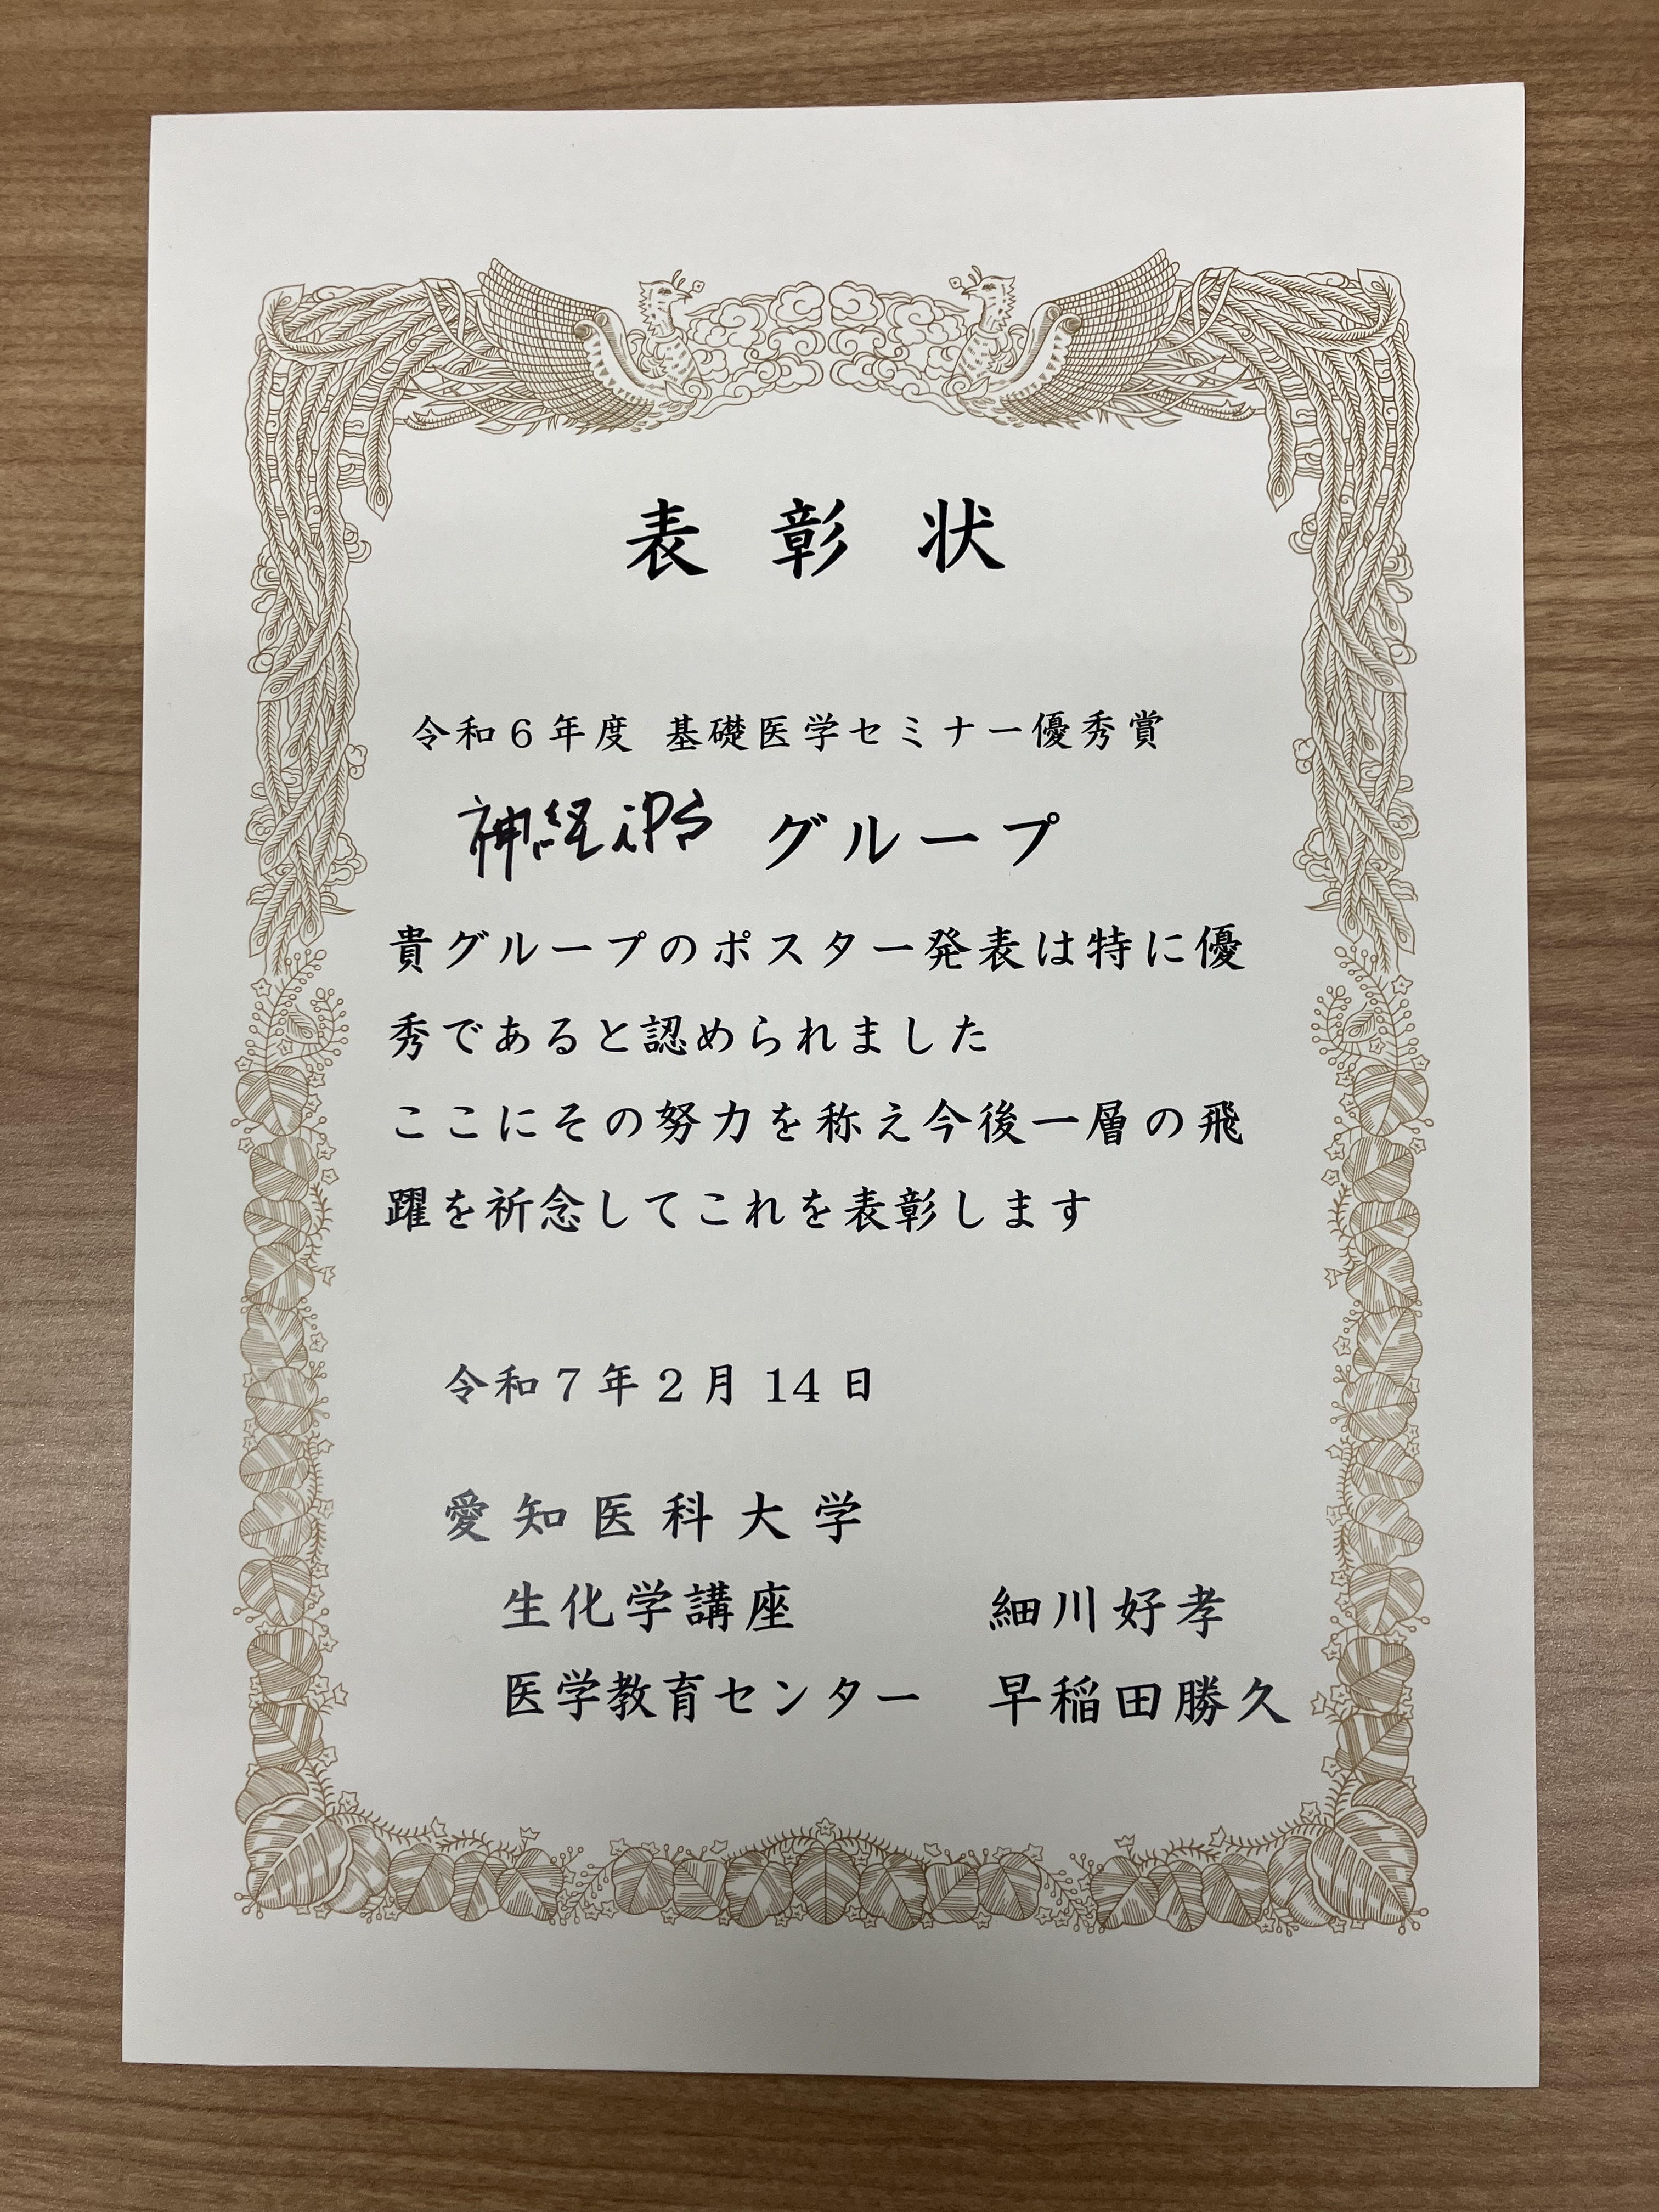 表彰状
令和6年度 基礎医学セミナー優秀賞
神経iPS グループ
貴グループのポスター発表は特に優
秀であると認められました
ここにその努力を称え今後一層の飛
躍を祈念してこれを表彰します
令和7年2月14日
愛知医科大学
生化学講座 細川好孝
医学教育センター 早稲田勝久